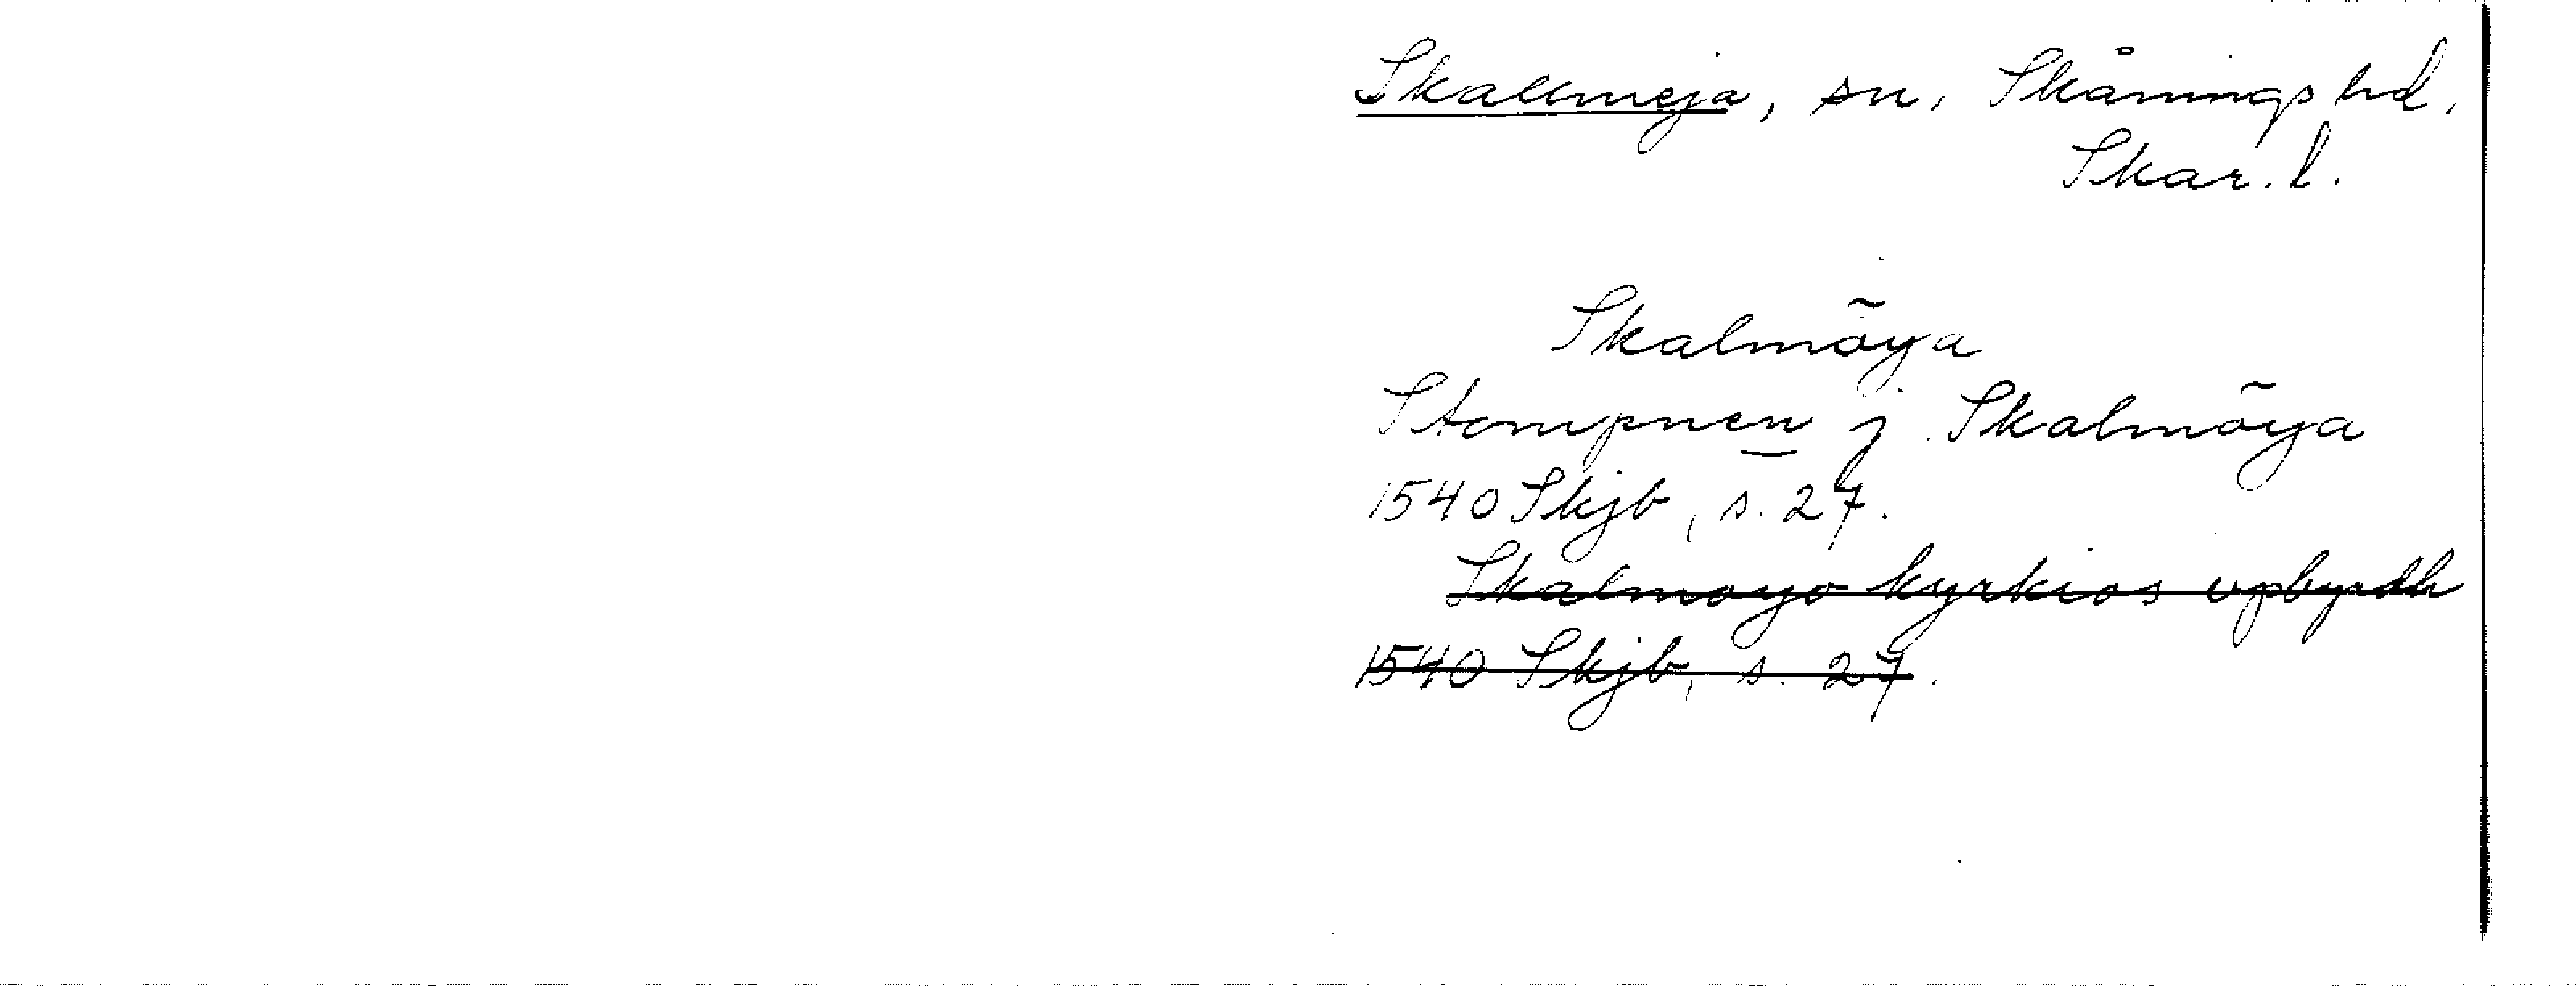 Skallmeja, sn, Skånings hd,
Skar. l.
Skalmõya
Stompnen j Skalmõya
1540 Skjb, s. 27.
Skalmoyo kyrkios vpbyrdh
1540 Skjb, s. 27.